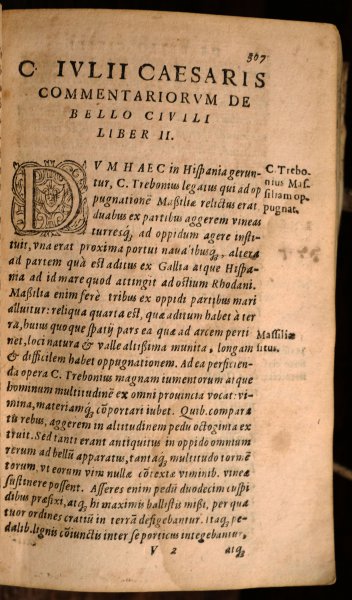 307
C IVLII CAESARIS
COMMENTARIORVM DE
BELLO CIVILI
LIBER II.
DVMHAEC in Hispania gerun-
tur, C. Trebonius legatus qui ad op
pugnationē Massiliæ relictus erat
duabus ex partibus aggerem vineas
turresq́, ad oppidum agere insti-
tuit, vna erat proxima portui naualibusq́, altera
ad partem quà est aditus ex Gallia atque Hispa-
nia ad id mare quod attingit ad ostium Rhodani.
Massilia enim ferè tribus ex oppidi partibus mari
alluitur: reliqua quarta est, quæ aditum habet à ter
ra, huius quoque spatij pars ea quæ ad arcem perti
net, loci natura & valle altissima munita, longam
& difficilem habet oppugnationem. Ad ea perficien-
da opera C. Trebonius magnam iumentorum atque
hominum multitudinē ex omni prouincia vocat: vi-
mina, materiamq́, cōportari iubet. Quib. compara
tis rebus, aggerem in altitudinem pedū octoginta ex
truit. Sed tanti erant antiquitus in oppido omnium
rerum ad bellū apparatus, tantaq́, multitudo tormē
torum, vt eorum vim nullæ cōtextæ viminib. vineæ
sustinere possent. Asseres enim pedū duodecim cuspi
dibus præfixi, atq́, hi maximis ballistis missi, per qua
tuor ordines cratiū in terrā defigebantur. Itaq́, pe-
dalib. lignis cōiunctis inter se porticus integebantur,
V 2 atq́,
C. Trebo-
nius Mas-
siliam op-
pugnat.
Massiliæ
situs.